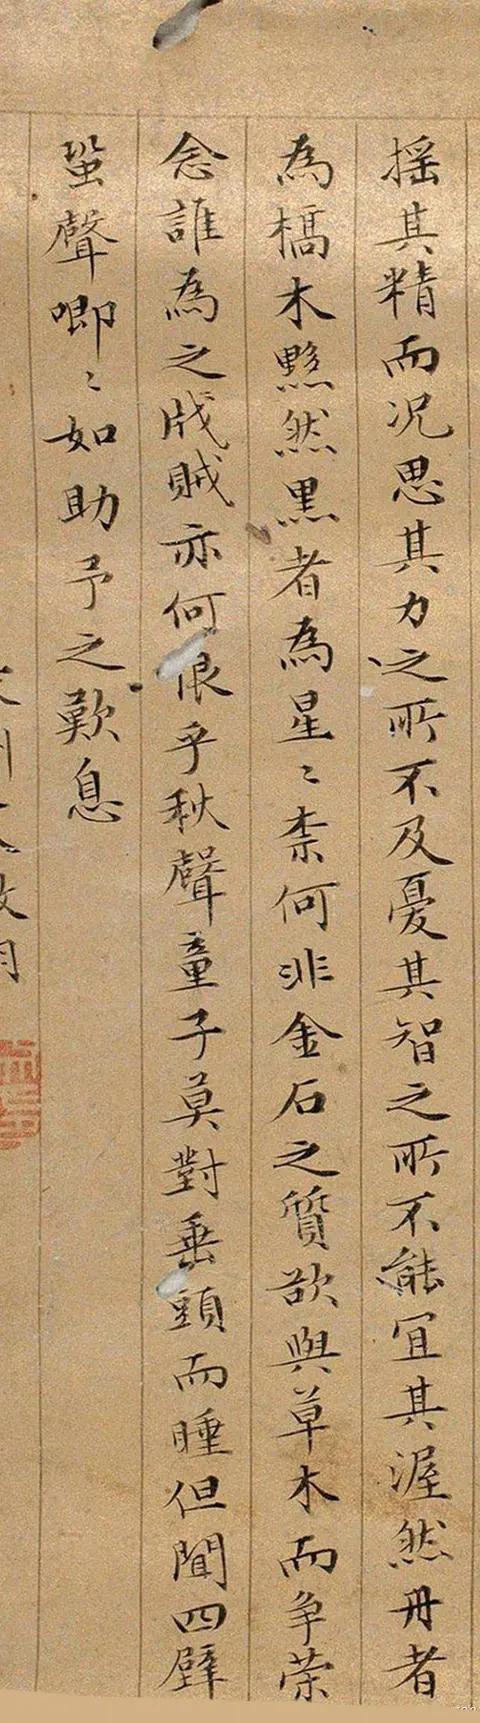 揺其精而况思其力之所不及憂其智之所不能宜其渥然丹者
為槁木黟然黒者為星〻柰何非金石之質欲與草木而争荣
念誰為之戕賊亦何恨乎秋聲童子莫對垂頭而睡但聞四壁
蛩聲唧〻如助予之歎息